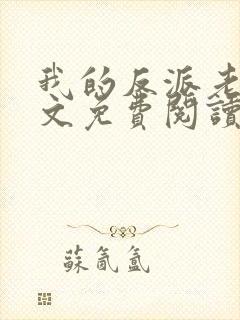 我的反派老
文免費閱讀
蘇氤氳